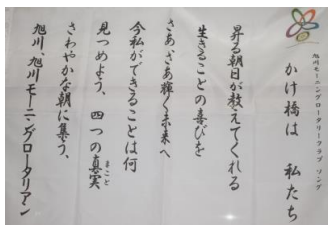 旭川モーニングロータリークラブ ソング
かけ橋は 私たち
昇る朝日が教えてくれる
生きることの喜びを
さあさあ輝く未来へ
今私ができることは何
見つめよう、四つの真実
まこと
さわやかな朝に集う、
旭川、旭川モーニングロータリアン